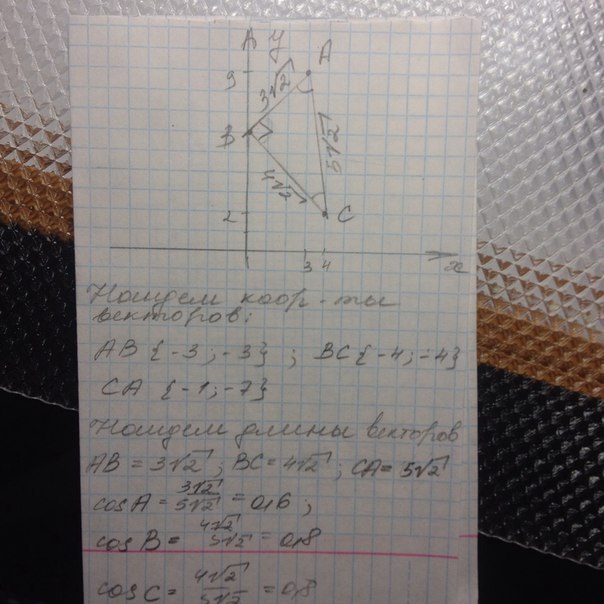 y
A
9
3√2
B
5√2
4√2
C
2
3 4
x
Найдем коор-ты
векторов:
AB {-3; -3} ; BC {-4; -4}
CA {-1; -7}
Найдем длины векторов
AB = 3√2 ; BC = 4√2 ; CA = 5√2
cosA = 3√2/5√2 = 0,6 ;
cosB = 4√2/5√2 = 0,8
cosC = 4√2/5√2 = 0,8